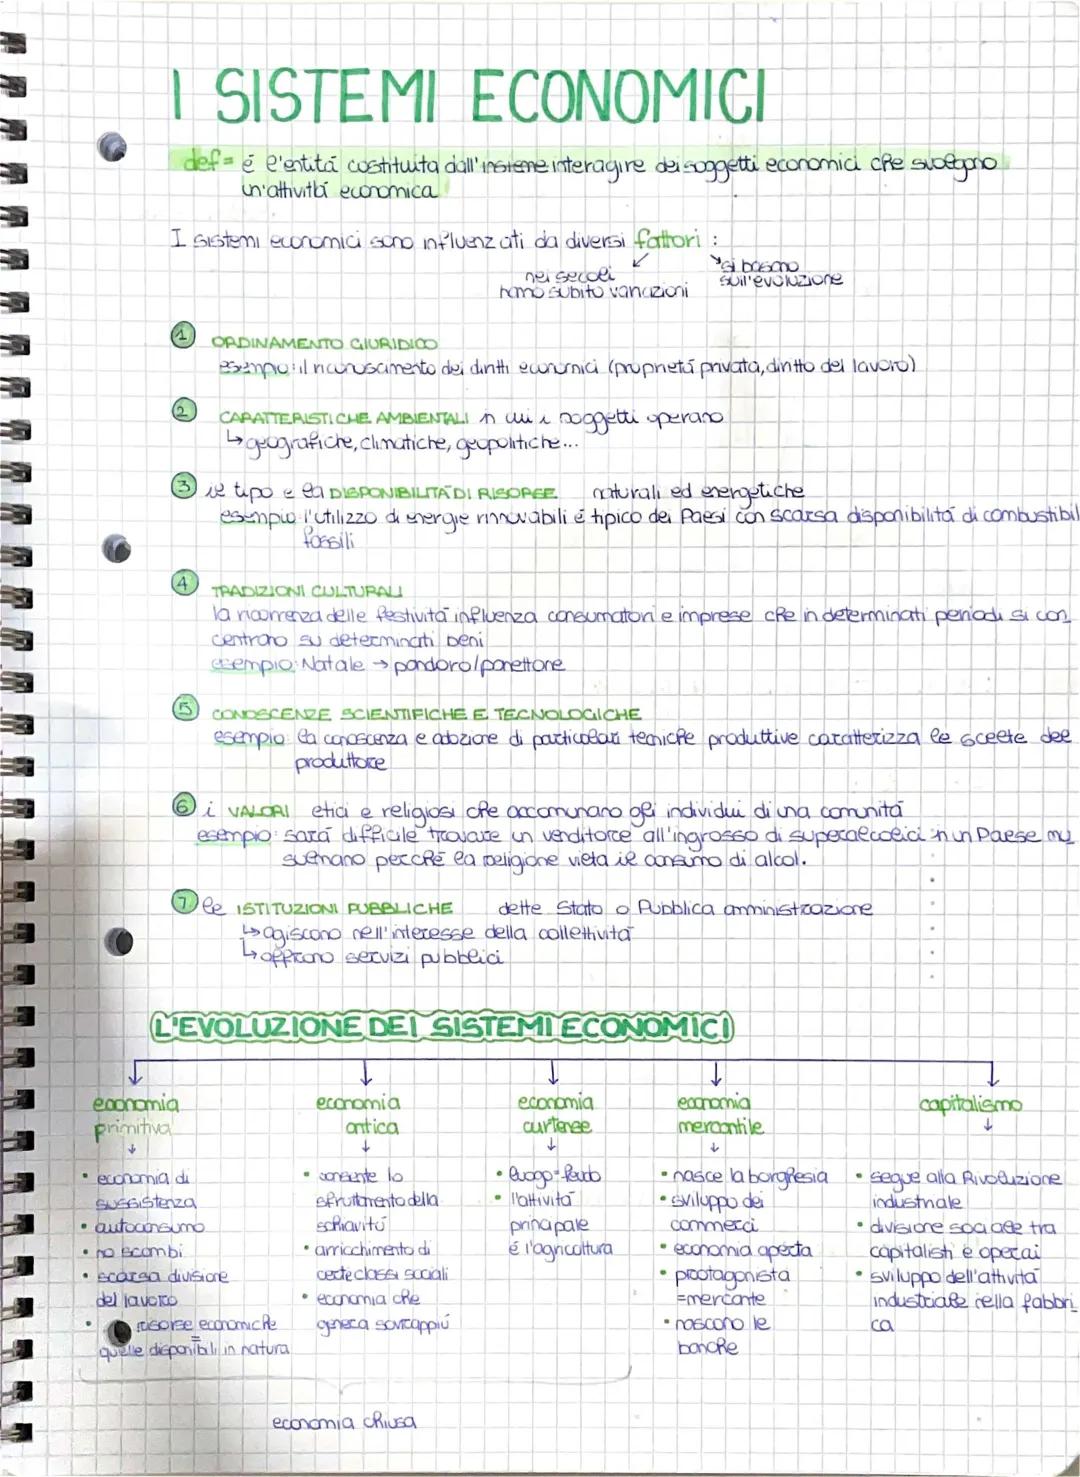 I SISTEMI ECONOMICI
def = é l'entitá costituita dall'insieme interagire dei soggetti economici che svolgono
un'attivitá economica
I sistemi economici sono influenzati da diversi fattori :
nei secoli
hanno subito variazioni
si basano
sull'evoluzione
1 ORDINAMENTO GIURIDICO
esempio: il riconoscimento dei diritti economici (proprietá privata, diritto del lavoro)
2 CARATTERISTICHE AMBIENTALI in cui i soggetti operano
↳ geografiche, climatiche, geopolitiche...
3 il tipo e la DISPONIBILITÁ DI RISORSE naturali ed energetiche
esempio l'utilizzo di energie rinnovabili é tipico dei Paesi con scarsa disponibilitá di combustibil
fossili
4 TRADIZIONI CULTURALI
la ricorrenza delle festivitá influenza consumatori e imprese che in determinati periodi si con
centrano su determinati beni
esempio: Natale → pandoro/panettone
5 CONOSCENZE SCIENTIFICHE E TECNOLOGICHE
esempio: la conoscenza e adozione di particolari tecniche produttive caratterizza le scelte del
produttore
6 i VALORI etici e religiosi che accomunano gli individui di una comunitá
esempio: sará difficile trovare un venditore all'ingrosso di superalcolici in un Paese mu
sulmano perché la religione vieta il consumo di alcol.
7 le ISTITUZIONI PUBBLICHE dette Stato o Pubblica amministrazione
↳ agiscono nell'interesse della collettivitá
↳ offrono servizi pubblici
L'EVOLUZIONE DEI SISTEMI ECONOMICI
economia
primitiva
• economia di
sussistenza
• autoconsumo
• no scambi
• scarsa divisione
del lavoro
• risorse economiche
=
quelle disponibili in natura
economia
antica
• consente lo
sfruttamento della
schiavitú
• arricchimento di
certe classi sociali
• economia che
genera sovrappiú
economia
curtense
• luogo = feudo
• l'attivitá
principale
é l'agricoltura
economia
mercantile
• nasce la borghesia
• sviluppo dei
commerci
• economia aperta
• protagonista
= mercante
• nascono le
banche
capitalismo
• segue alla Rivoluzione
industriale
• divisione sociale tra
capitalisti e operai
• sviluppo dell'attivitá
industriale nella fabbri
ca
economia chiusa